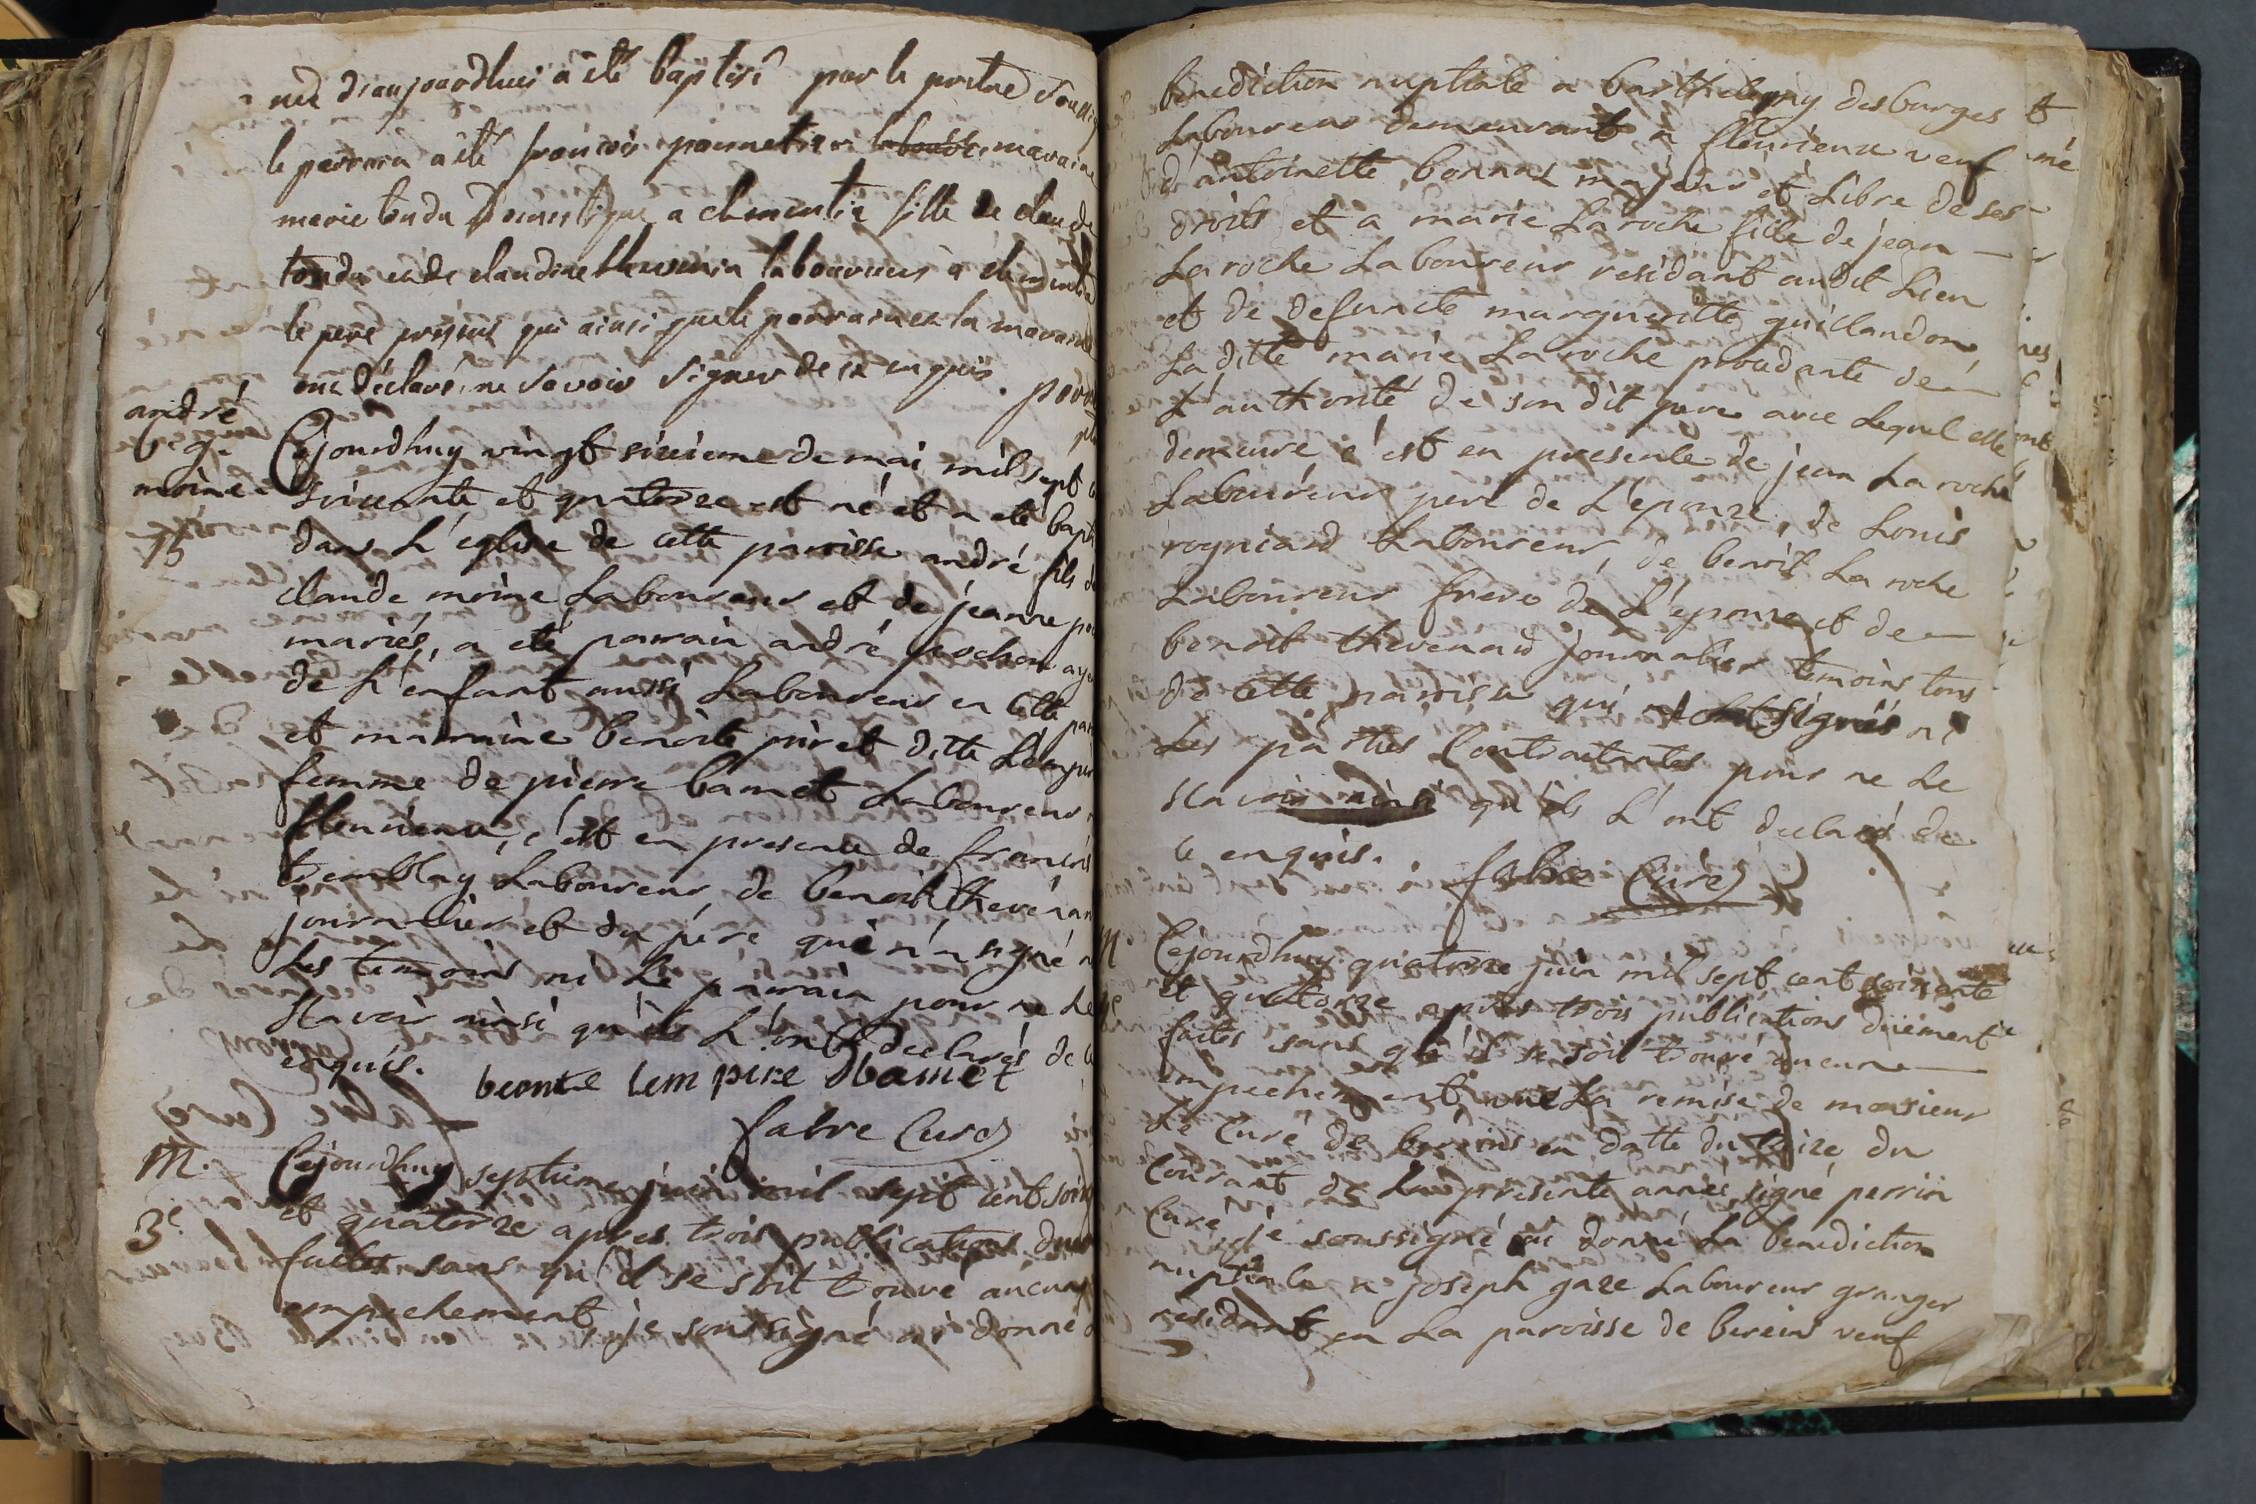 née d'aujourdhui a été baptisé par le pretre Soussig
le parrain a été françois marraine
marie tondu Domestique a chmentia fille de claude
tondu et de claudine laboureurs a
le pere present qui ainsi que le parrain et la maraine
ont déclaré ne Savoir Signer de ce enquis.
andré
b. g.
moine
15
Cejourdhuy vingt sixieme de mai mil sept c
soixante et quatorze est né et a eté bapti
dans L'eglise de cette paroisse andré fils de
claude moine Laboureur et de jeanne po
mariés, a eté parrain andré pochon ayeu
de L'enfant aussi Laboureur en cette par
et marraine benoite ditte L'emper
femme de pierre bamet Laboureur
fleurieux, c'est en presence de francois
tremblay Laboureur, de benoit thevenar
journalier et du père qui n'a signé n
Les temoins ni Le parrain pour ne Le
scavoir ainsi qu'ils L'ont declarés de c
enquis.
beonte lempire Dbamet
fabre Curé
M.
3e
Cejourdhuy septieme juin mil sept cent soix
et quatorze apres trois publications due
faites sans qu'il se soit trouvé aucun
empechement je soussigné ai donné
benediction nuptiale a barthelemy desburges
Laboureur demeurant a fleurieux veuf
d'antoinette bonnas majeur et Libre de ses
droits et a marie La roche fille de jean
La roche Laboureur residant audit Lieu
et de defuncte margueritte guillandon,
La ditte marie La roche de
L'authorité de son dit pere avec Lequel elle
demeure c'est en presence de jean La roche
Laboureur pere de L'epouze, de Louis
rogniard Laboureur, de benoit La roche
Laboureur frere de L'epouze et de
benoit thevenard journalier temoins tous
de cette paroisse qui signés ni
Les parties Contractantes pour ne Le
scavoir ainsi qu'ils L'ont declarés de
ce enquis.
fabre Curé
M
Cejourdhuy quatorze juin mil sept cent soixente
et quatorze apres trois publications duëment
faites sans qu'il se soit trouvé aucune
empechement vue La remise de monsieur
Le Curé de bereins en datte du treize du
Courant de La presente année signé perrin
Curé je soussigné ai donné La benediction
nuptiale a joseph gaze Laboureur granger
residant en La paroisse de berein veuf